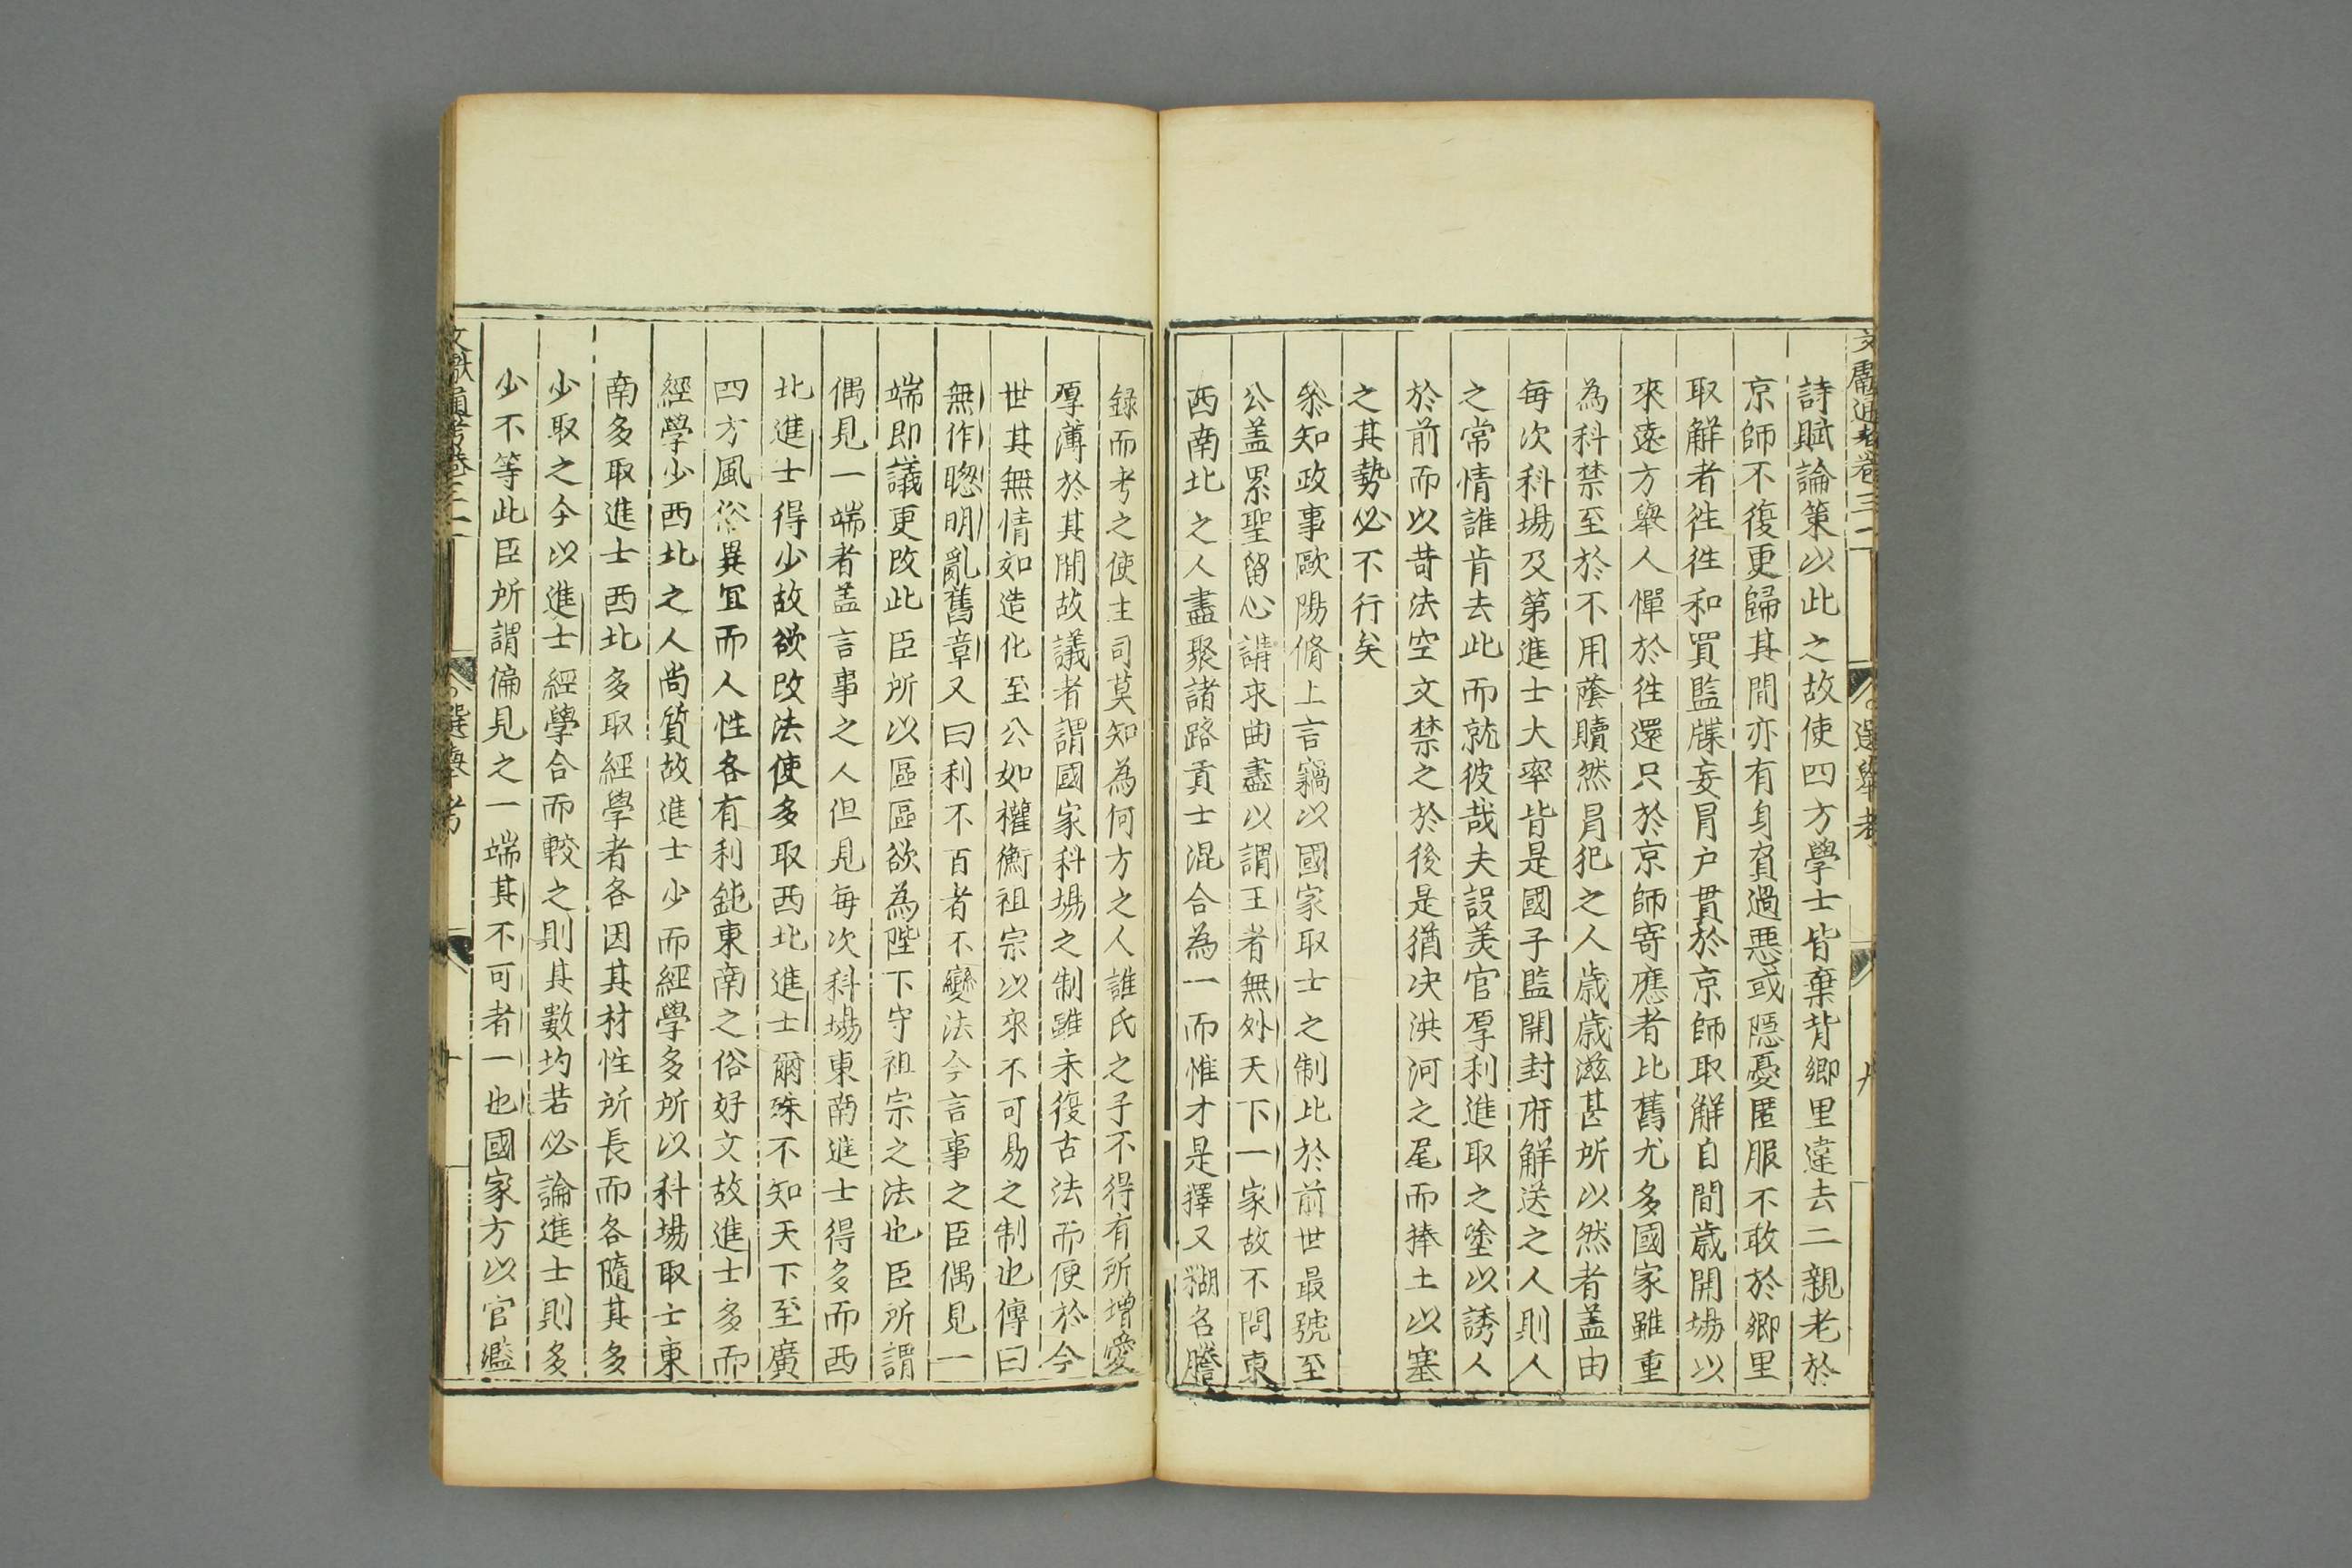 文獻通考卷三十一
選舉考
九
詩賦論策以此之故使四方學士皆棄背鄉里違去二親老於
京師不復更歸其間亦有身負過惡或隱憂匿服不敢於鄉里
取解者徃徃和買監牒妄冒户貫於京師取解自間歲開場以
來遠方舉人憚於徃還只於京師寄應者比舊尤多國家雖重
為科禁至於不用蔭贖然冐犯之人歲歲滋甚所以然者盖由
每次科場及第進士大率皆是國子監開封府解送之人則人
之常情誰肯去此而就彼哉夫設美官厚利進取之塗以誘人
於前而以苛法空文禁之於後是猶决洪河之尾而捧土以塞
之其勢必不行矣
叅知政事歐陽脩上言竊以國家取士之制比於前世最號至
公盖累聖留心講求曲盡以謂王者無外天下一家故不問東
西南北之人盡聚諸路貢士混合為一而惟才是擇又糊名謄
録而考之使主司莫知為何方之人誰氏之子不得有所增愛
厚薄於其間故議者謂國家科塲之制雖未復古法而便於今
世其無情如造化至公如權衡祖宗以來不可易之制也傳曰
無作聰明亂舊章又曰利不百者不變法今言事之臣偶見一
端即議更改此臣所以區區欲為陛下守祖宗之法也臣所謂
偶見一端者盖言事之人但見每次科場東南進士得多而西
北進士得少故欲改法使多取西北進士爾殊不知天下至廣
四方風俗異宜而人性各有利鈍東南之俗好文故進士多而
經學少西北之人尚質故進士少而經學多所以科場取士東
南多取進士西北多取經學者各因其材性所長而各隨其多
少取之今以進士經學合而較之則其數均若必論進士則多
少不等此臣所謂偏見之一端其不可者一也國家方以官濫
文獻通考卷三十一
選舉考
十